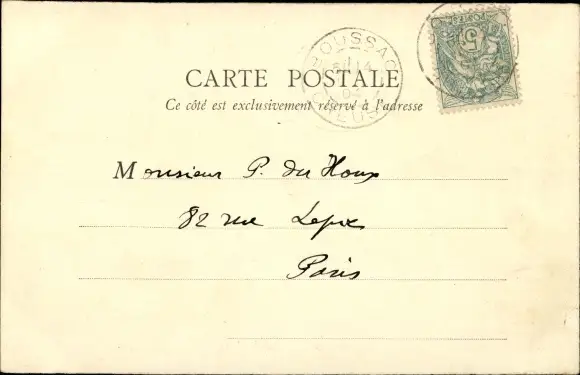 BOUSSAC
14
CREUSE
CARTE POSTALE
Ce côté est exclusivement réservé à l'adresse
Monsieur P. du Houx
82 rue Lepic
Paris